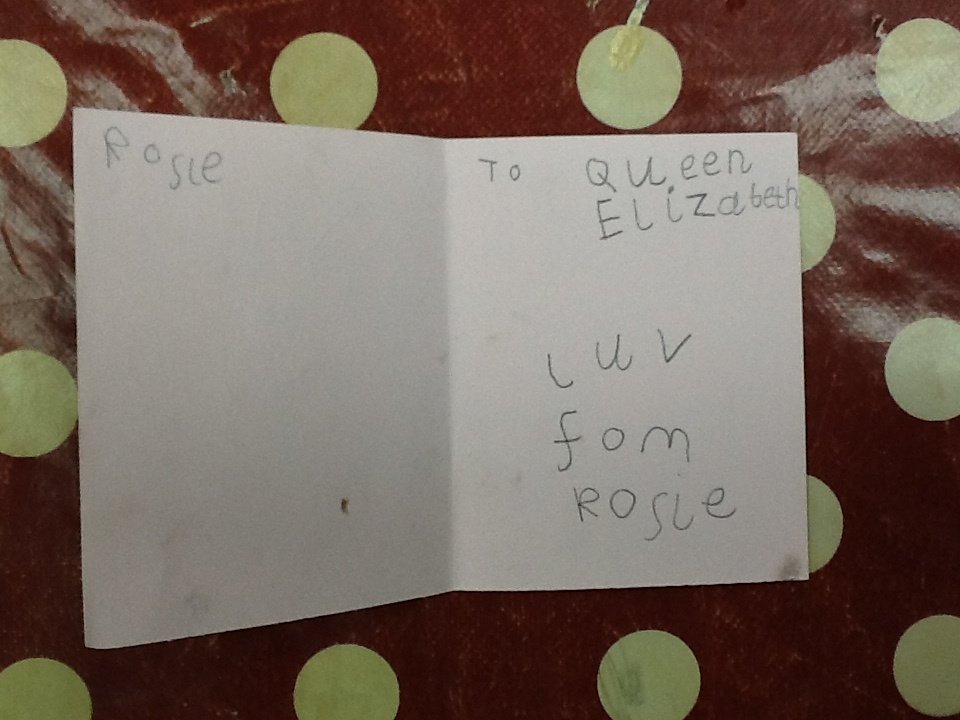 Rosie
To Queen
Elizabeth
luv
fom
Rosie